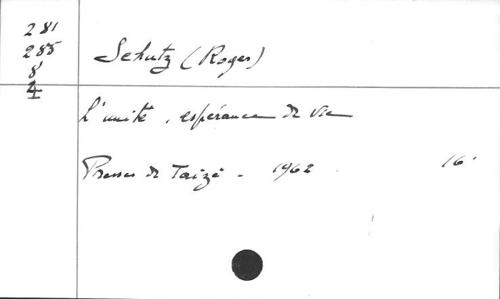 281
285
8
4
Schutz (Roger)
L'unité, espérance de vie
Presses de Taizé - 1962 16